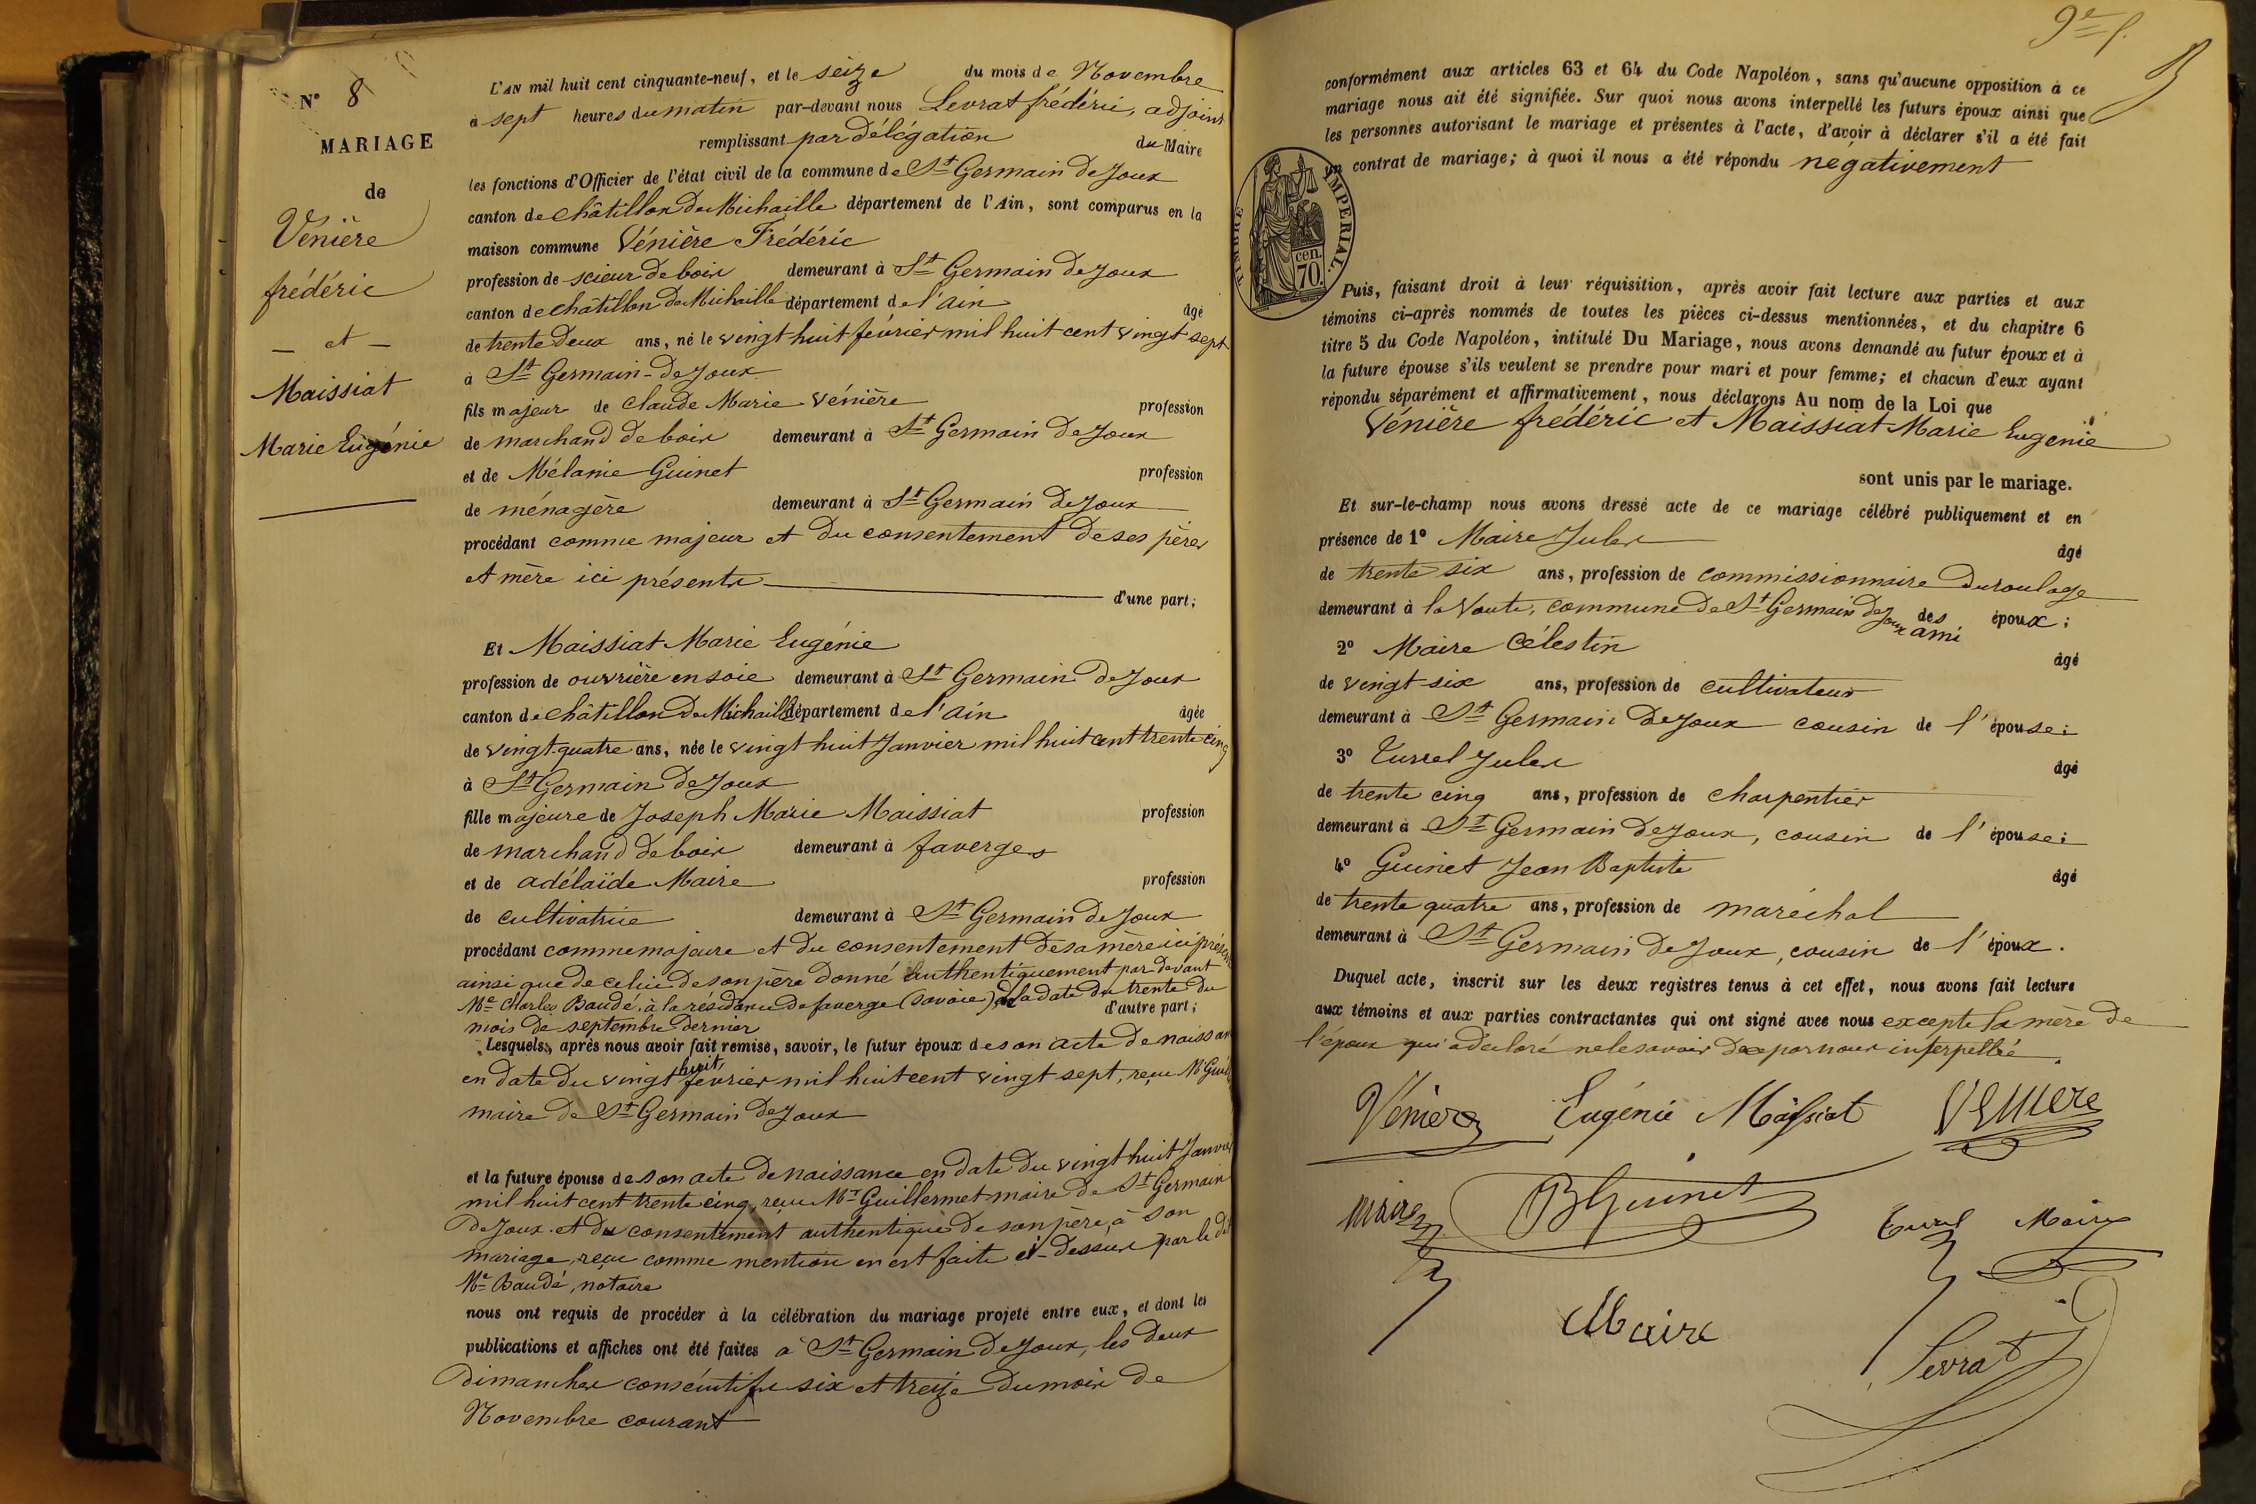 N° 8
MARIAGE
de
Vénière
frédéric
— et —
Maissiat
Marie Eugénie
L'AN mil huit cent cinquante-neuf, et le seize du mois de Novembre
à sept heures du matin par-devant nous Levrat frédéric, adjoint
remplissant par délégation du Maire
les fonctions d'Officier de l'état civil de la commune de St Germain de Joux
canton de Châtillon de Michaille département de l'Ain, sont comparus en la
maison commune Vénière Frédéric
profession de scieur de bois demeurant à St Germain de Joux
canton de Châtillon de Michaille département de l'ain âgé
de trente deux ans, né le vingt huit février mil huit cent vingt sept
à St Germain-de Joux
fils majeur de Claude Marie Vénière profession
de marchand de bois demeurant à St Germain de Joux
et de Mélanie Guinet profession
de ménagère demeurant à St Germain de Joux
procédant comme majeur et du consentement de ses père
et mère ici présents d'une part;
Et Maissiat Marie Eugénie
profession de ouvrière en soie demeurant à St Germain de Joux
canton de châtillon de Michaille département de l'ain âgée
de vingt quatre ans, née le vingt huit Janvier mil huit cent trente cinq
à St Germain de Joux
fille majeure de Joseph Marie Maissiat profession
de marchand de bois demeurant à faverges
et de adélaïde Maire profession
de cultivatrice demeurant à St Germain de Joux
procédant comme majeure et du consentement de sa mère ici présente
ainsi que de celui de son père donné authentiquement par devant
Me Charles Baudé, à la résidance de faverge (savoie) à la date du trente du
mois de septembre dernier d'autre part;
Lesquels, après nous avoir fait remise, savoir, le futur époux de son acte de naissance
en date du vingt huit février mil huit cent vingt sept, reçu Mr
maire de St Germain de Joux
et la future épouse de son acte de naissance en date du vingt huit Janvier
mil huit cent trente cinq, reçu Mr Guillermet maire de St Germain
de Joux. et du consentement authentique de son père, à son
mariage, reçu comme mention en est faite ci-dessus par le dit
Me Baudé, notaire
nous ont requis de procéder à la célébration du mariage projeté entre eux, et dont les
publications et affiches ont été faites à St Germain de Joux, les deux
dimanches consécutifs six et treize du mois de
Novembre courant
9e f.
conformément aux articles 63 et 64 du Code Napoléon, sans qu'aucune opposition à ce
mariage nous ait été signifiée. Sur quoi nous avons interpellé les futurs époux ainsi que
les personnes autorisant le mariage et présentes à l'acte, d'avoir à déclarer s'il a été fait
un contrat de mariage; à quoi il nous a été répondu négativement
TIMBRE IMPERIAL.
cen.
70.
Puis, faisant droit à leur réquisition, après avoir fait lecture aux parties et aux
témoins ci-après nommés de toutes les pièces ci-dessus mentionnées, et du chapitre 6
titre 5 du Code Napoléon, intitulé Du Mariage, nous avons demandé au futur époux et à
la future épouse s'ils veulent se prendre pour mari et pour femme; et chacun d'eux ayant
répondu séparément et affirmativement, nous déclarons Au nom de la Loi que
Vénière frédéric et Maissiat Marie Eugénie
sont unis par le mariage.
Et sur-le-champ nous avons dressé acte de ce mariage célébré publiquement et en
présence de 1° Maire Jules âgé
de trente six ans, profession de commissionnaire du roulage
demeurant à la Voute, commune de St Germain de Joux ami des époux;
2° Maire Célestin âgé
de vingt six ans, profession de cultivateur
demeurant à St Germain de Joux cousin de l'épouse;
3° Turrel Jules âgé
de trente cinq ans, profession de charpentier
demeurant à St Germain de Joux, cousin de l'épouse;
4° Guinet Jean Baptiste âgé
de trente quatre ans, profession de maréchal
demeurant à St Germain de Joux, cousin de l'époux.
Duquel acte, inscrit sur les deux registres tenus à cet effet, nous avons fait lecture
aux témoins et aux parties contractantes qui ont signé avec nous excepté la mère de
l'époux qui a déclaré ne le savoir de ce par nous interpellée.
Vénière Eugénie Maissiat Vénière
Maire BGuinet Turrel Maire
Maire
Levrat